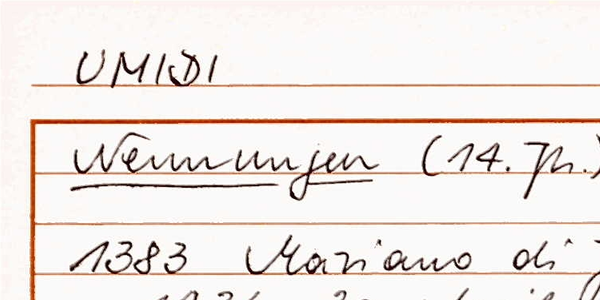 UMIDI
Nennungen (14. Jh.)
1383 Mariano di